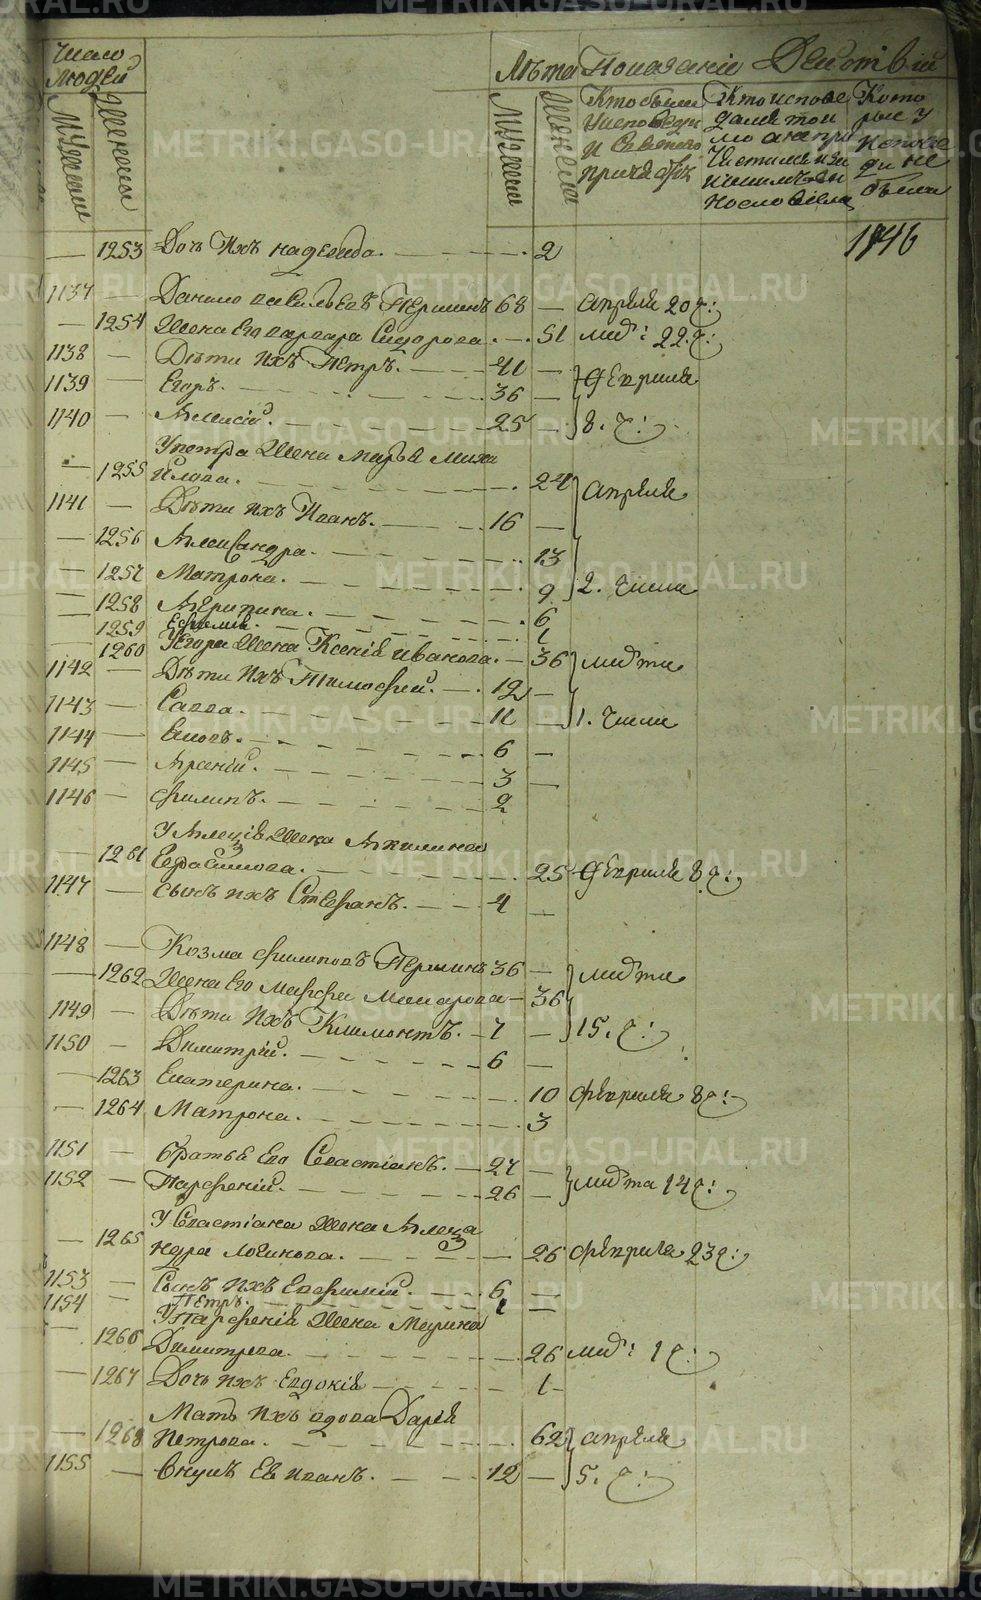 Число Людей
Лѣта Показаніе Действій
Мужеска
Женска
Мужеска
Женска
Кто были у исповеди и Святаго причастія
Кто исповедался токмо а не при
Которые у исповеди не были
1846
1253 Дочь Ихъ надежда. 2
1137 Данило васильевъ Першинъ 68 апреля 20 ч:
1254 Жена Его варвара Сидорова. 51 мар: 22 ч:
1138 Дѣти ихъ Петръ. 41
1139 Егоръ. 36 февраля
1140 Алексій. 25 8. ч:
У петра Жена Марья Миха
1255 йлова. 24 апреля
1141 Дѣти ихъ Иванъ. 16
1256 Александра. 13
1257 Матрона. 9 2. числа
1258 Агрипина. 6
1259 Ефимія. 1
1260 У Егора Жена Ксенія иванова. 36 марта
1142 Дѣти Ихъ Тимофей. 12
1143 Савва. 11 1. числа
1144 6
1145 Арсеній. 3
1146 филипъ. 2
У Алексія Жена Акилина
1261 Герасимова. 25 февраля 8 ч:
1147 сынъ ихъ Стефанъ. 4
1148 Козма филиповъ Першинъ 36
1262 Жена Его Марфа Макарова 36 марта
1149 Дѣти Ихъ Климонтъ. 7 15. ч:
1150 Димитрій. 6
1263 Екатерина. 10 февраля 8 ч:
1264 Матрона. 3
1151 братья Его Севастіянъ. 27
1152 Парфеній. 26 марта 14 ч:
У Севастіана Жена Алекса
1265 ндра Логинова. 26 февраля 23 ч:
1153 Сынъ ихъ Евфимій. 6
1154 Петръ. 1
У Парфенія Жена Марина
1266 Димитрева. 26 мар: 1 ч:
1267 Дочь ихъ Евдокія 1
Мать Ихъ вдова Дарія
1268 Петрова. 62 апреля
1155 Внукъ Ея иванъ. 12 5. ч:
METRIKI.GASO-URAL.RU